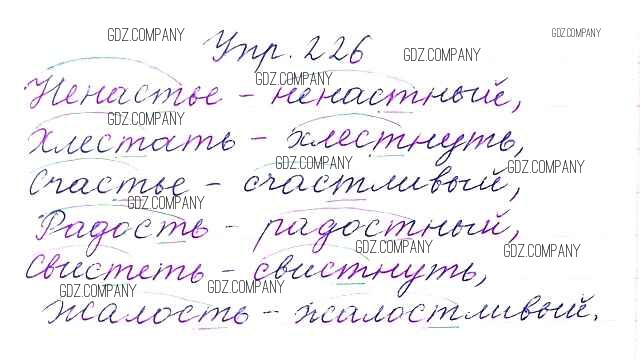 GDZ.COMPANY
Упр. 226
GDZ.COMPANY
GDZ.COMPANY
GDZ.COMPANY
Ненастье - ненастный,
GDZ.COMPANY
Хлестать - хлестнуть,
GDZ.COMPANY
GDZ.COMPANY
Счастье - счастливый,
GDZ.COMPANY
Радость - радостный,
GDZ.COMPANY
GDZ.COMPANY
Свистеть - свистнуть,
GDZ.COMPANY
GDZ.COMPANY
Жалость - жалостливый.